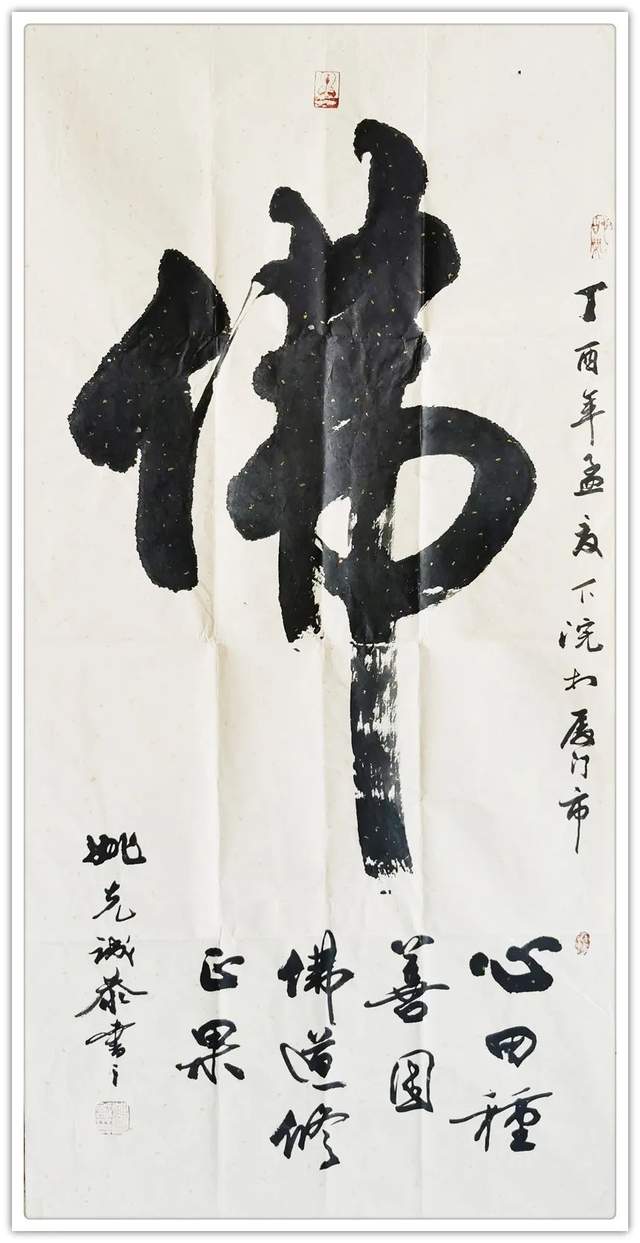 佛
丁酉年孟夏下浣於厦门市
心田種
善因
佛道修
正果
姚克誠恭書